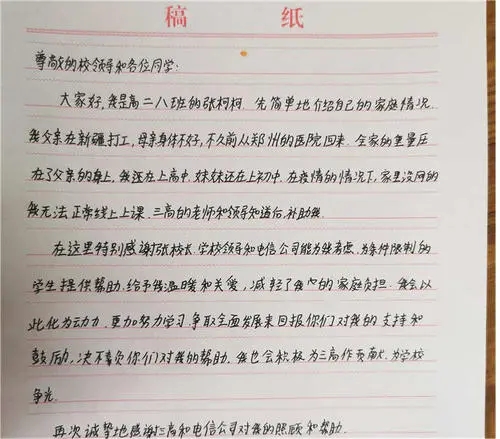 稿 纸
尊敬的校领导和各位同学:
大家好,我是高二八班的张柯柯.先简单地介绍自己的家庭情况
我父亲在新疆打工,母亲身体不好,不久前从郑州的医院回来.全家的重量压
在了父亲的身上,我还在上高中.妹妹还在上初中.在疫情的情况下,家里没网的
我无法正常线上上课.三高的老师和领导知道后,补助我.
在这里特别感谢张校长.学校领导和电信公司能为我考虑.为条件限制的
学生提供帮助.给予我温暖和关爱,减轻了我的家庭负担.我会以
此化为动力.更加努力学习.争取全面发展来回报你们对我的支持和
鼓励,决不辜负你们对我的帮助.我也会积极为三高作贡献.为学校
争光.
再次诚挚地感谢三高和电信公司对我的照顾和帮助.